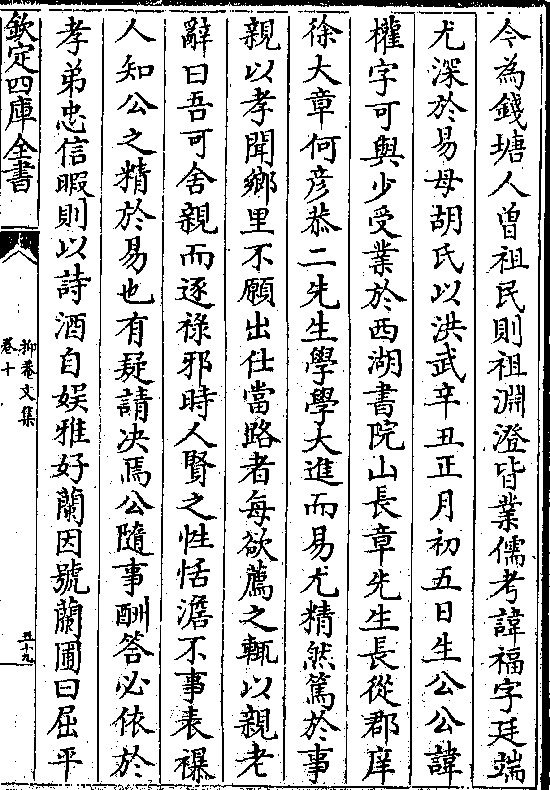 今為錢塘人曾祖民則祖淵澄皆業儒考諱福字廷端
尤深於易母胡氏以洪武辛丑正月初五日生公公諱
權字可與少受業於西湖書院山長章先生長從郡庠
徐大章何彦恭二先生學學大進而易尤精然篤於事
親以孝聞鄉里不願出仕當路者每欲薦之輒以親老
辭曰吾可舍親而逐祿邪時人賢之性恬澹不事表襮
人知公之精於易也有疑請决焉公隨事酬答必依於
孝弟忠信暇則以詩酒自娱雅好蘭因號蘭圃曰屈平
欽定四庫全書
抑菴文集
卷十
五十九